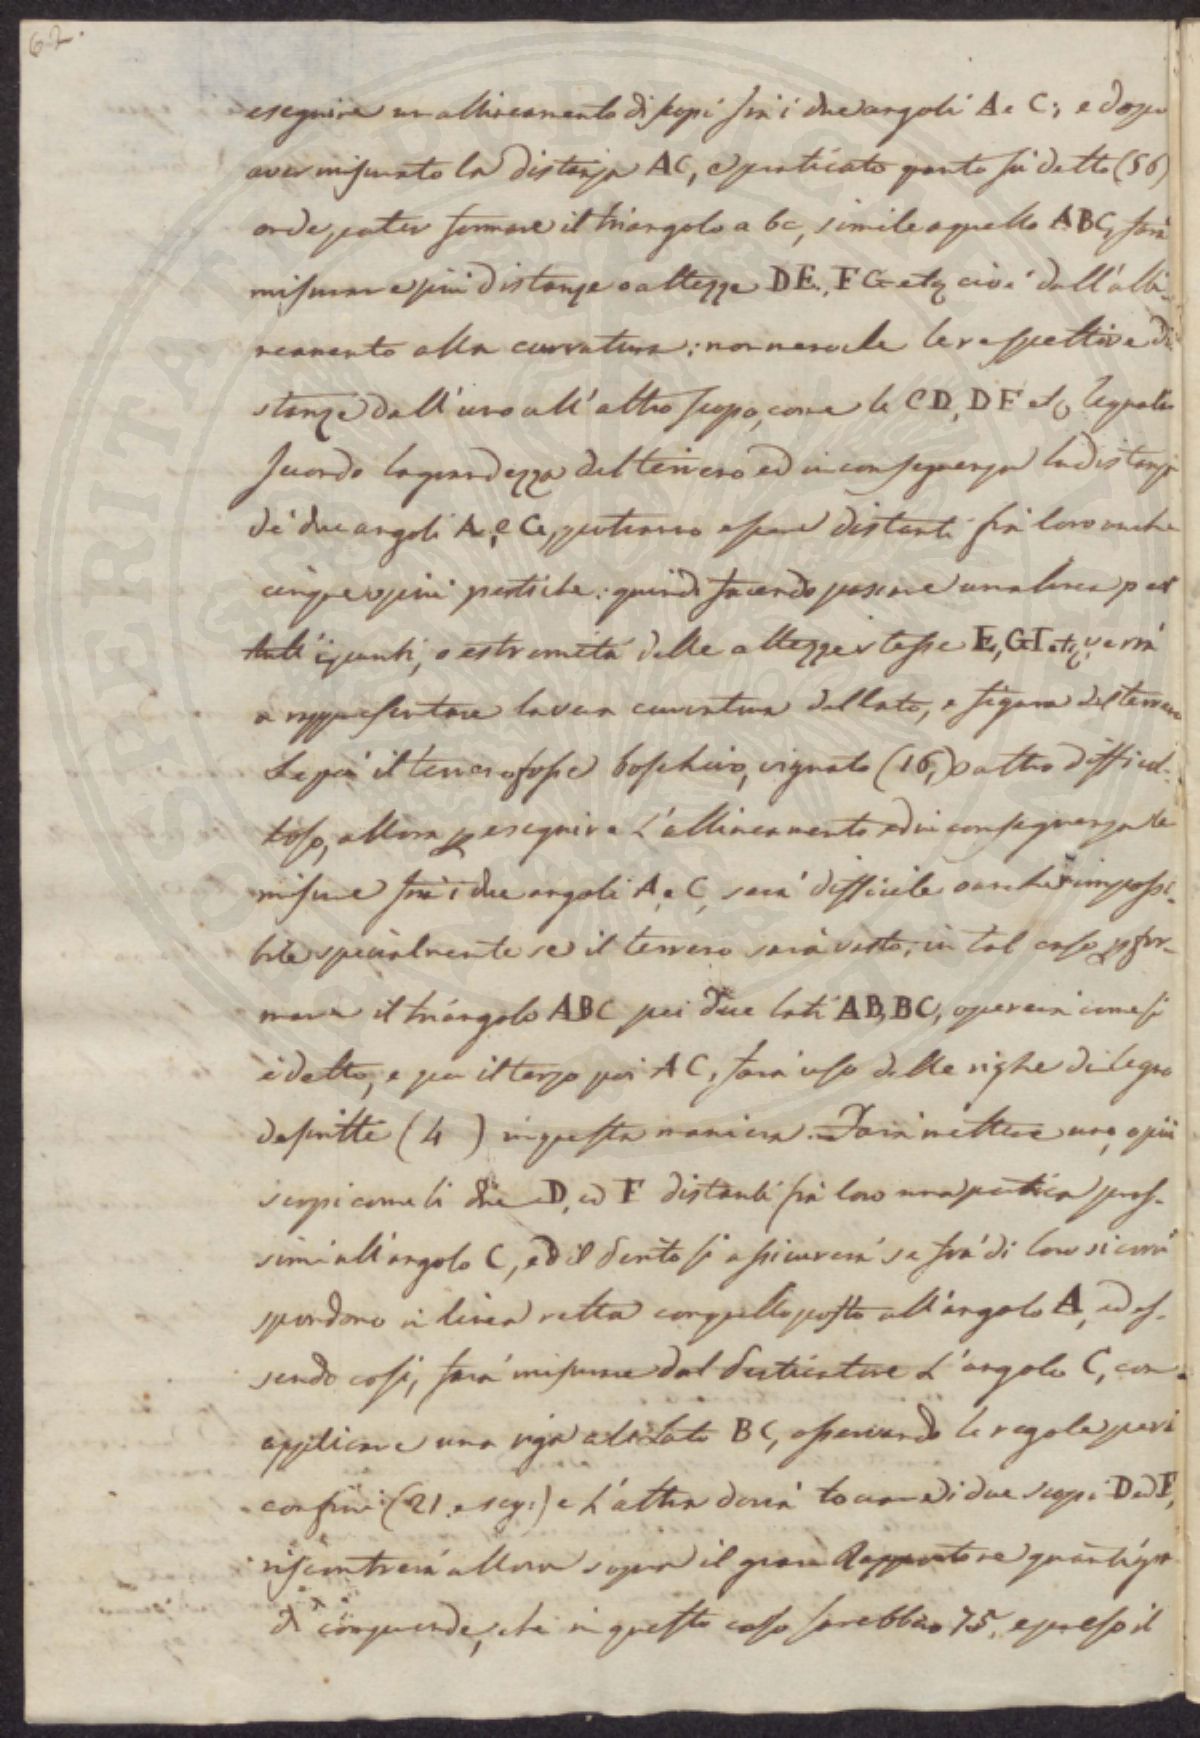 62.
eseguire un allineamento di scopi frà i due angoli A e C; e doppo
aver misurato la distanza AC, e praticato quanto fù detto (56)
onde poter formare il triangolo a bc, simile a quello ABC, farà
misurare più distanze o altezze DE, FG etc cioè dall'alli-
neamento alla curvatura: non meno che le respettive di-
stanze dall'uno all'altro scopo, come le CD, DF etc, le quali
secondo la grandezza del terreno ed in conseguenza la distanza
de' due angoli A, e C, potranno essere distanti frà loro anche
cinque o più pertiche: quindi facendo passare una linea per
tutt' i punti, o estremità delle altezze istesse E, G I etc, verrà
a rappresentare la vera curvatura del lato, e figura del terreno
Se poi il terreno fosse boschivo, vignato (16,) o altro difficol-
toso, allora p eseguire l'allineamento ed in conseguenza le
misure frà i due angoli A, e C, sarà difficile o anche impossi-
bile specialmente se il terreno sarà vasto; in tal caso p for-
mare il triangolo ABC pei due lati AB, BC, opererà come si
è detto, e per il terzo poi AC, farà uso delle righe di legno
descritte (4) in questa maniera. Farà mettere uno, o più
scopi come li due D, ed F distanti frà loro una pertica pros-
simi all'angolo C, ed il Perito si assicurerà se frà di loro si corri
spondono in linea retta con quello posto all'angolo A, ed es-
sendo così, farà misurare dal Perticatore l'angolo C, con
applicare una riga al lato BC, osservando le regole per i
confini (21. e seg:) e l'altra dovrà toccare di due scopi D ed F,
riscontrerà allora sopra il gran Rapportatore quanti gra
di comprende, che in questo caso sarebbero 75, e preso il